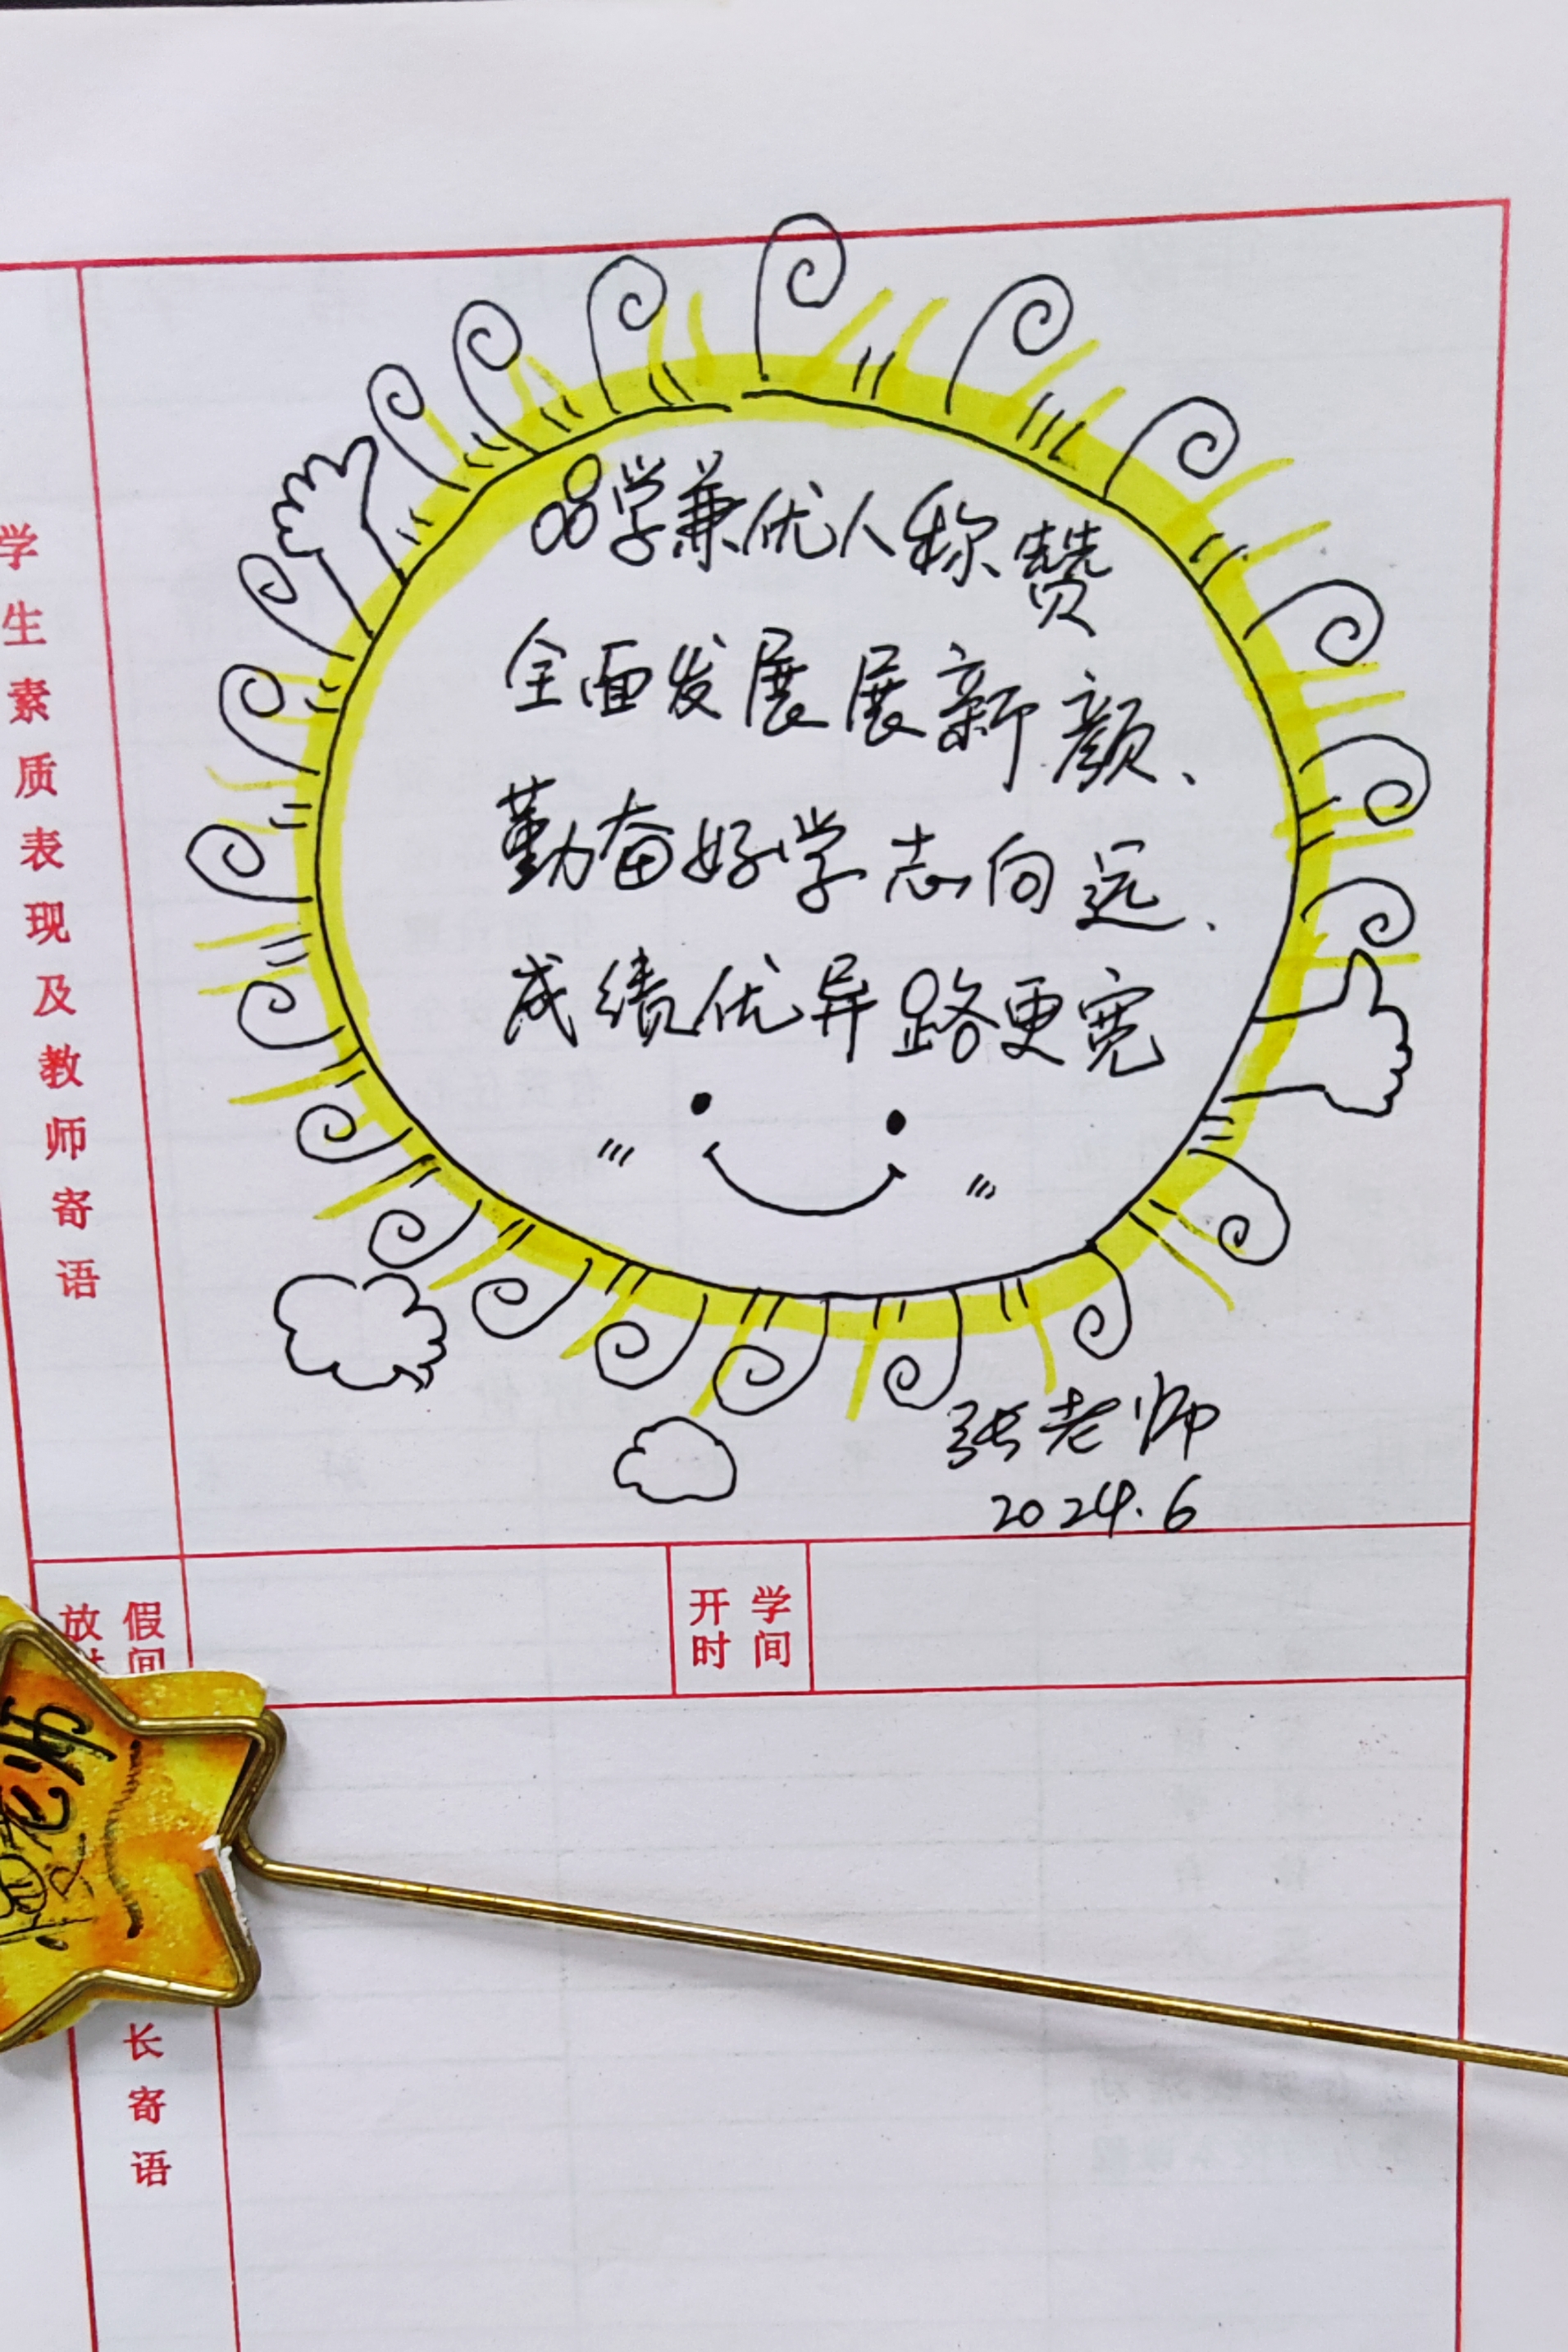 学生素质表现及教师寄语
品学兼优人称赞
全面发展展新颜、
勤奋好学志向远、
成绩优异路更宽
张老师
2024.6
放假
时间
开学
时间
长寄语
老师